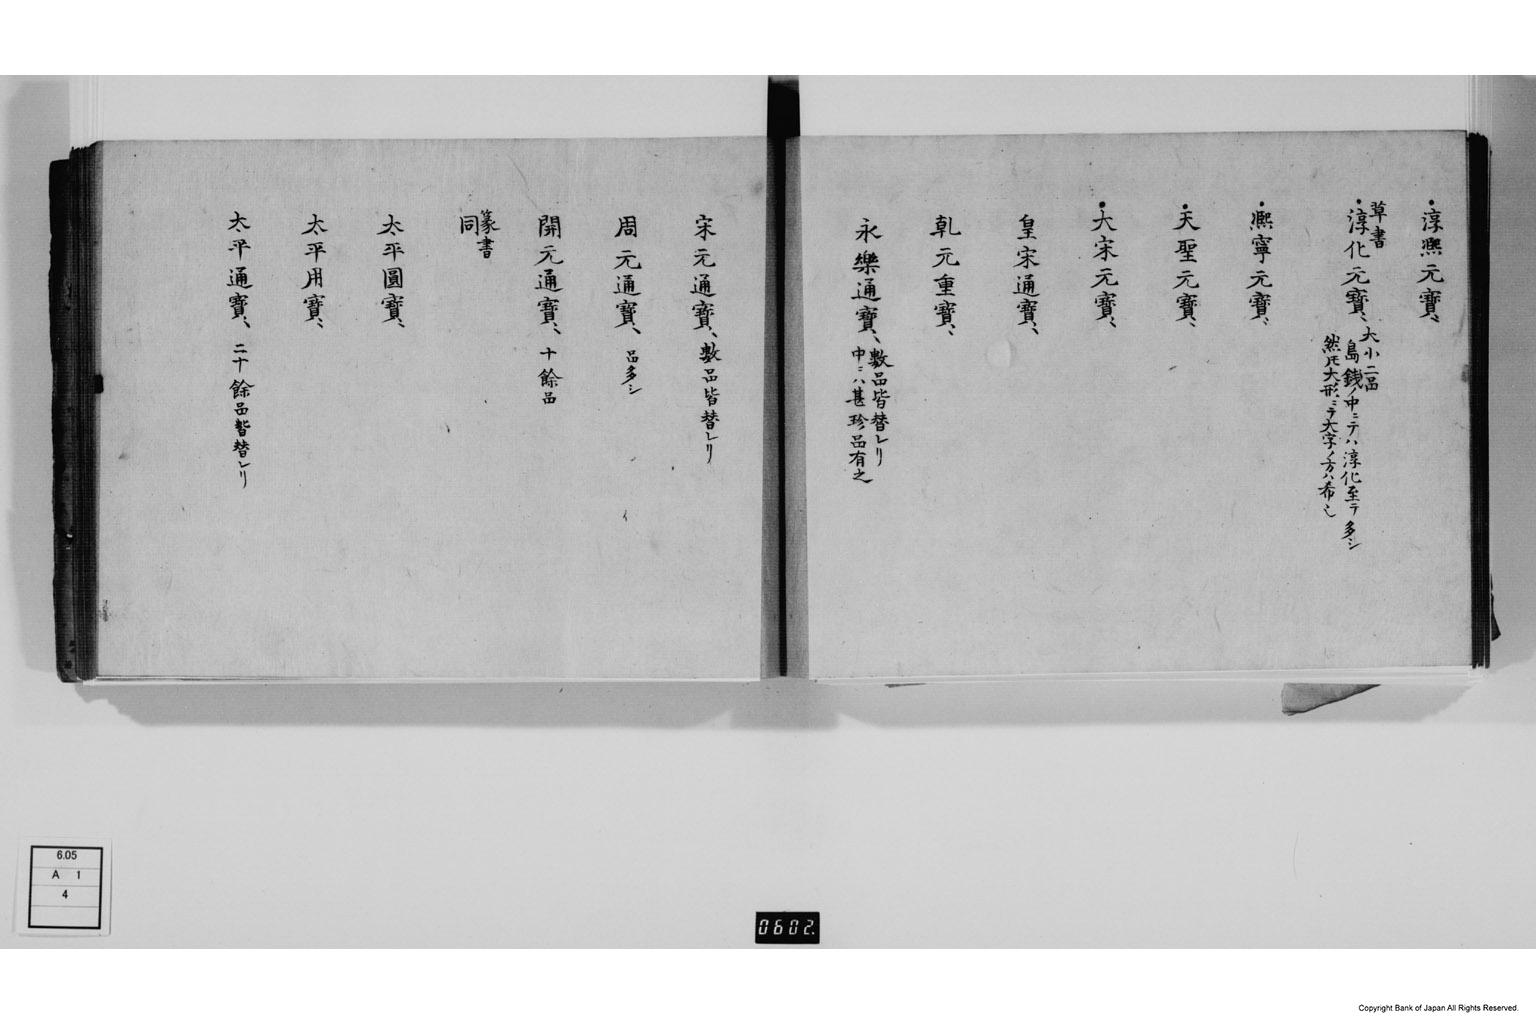 淳熈元寳、
草書
淳化元寳、大小二品
島錢ノ中ニテハ淳化至テ多シ
然𪜈大形ニテ大字ノ方ハ希也
熈寧元寳、
天聖元寳、
大宋元寳、
皇宋通寳、
乾元重寳、
永樂通寳、數品皆替レリ
中ニハ甚珍品有之
宋元通寳、數品皆替レリ
周元通寳、品多シ
開元通寳、十餘品
篆書
同
太平圓寳、
太平用寳、
太平通寳、二十餘品皆替レリ
6.05
A 1
4
0602.
Copyright Bank of Japan All Rights Reserved.